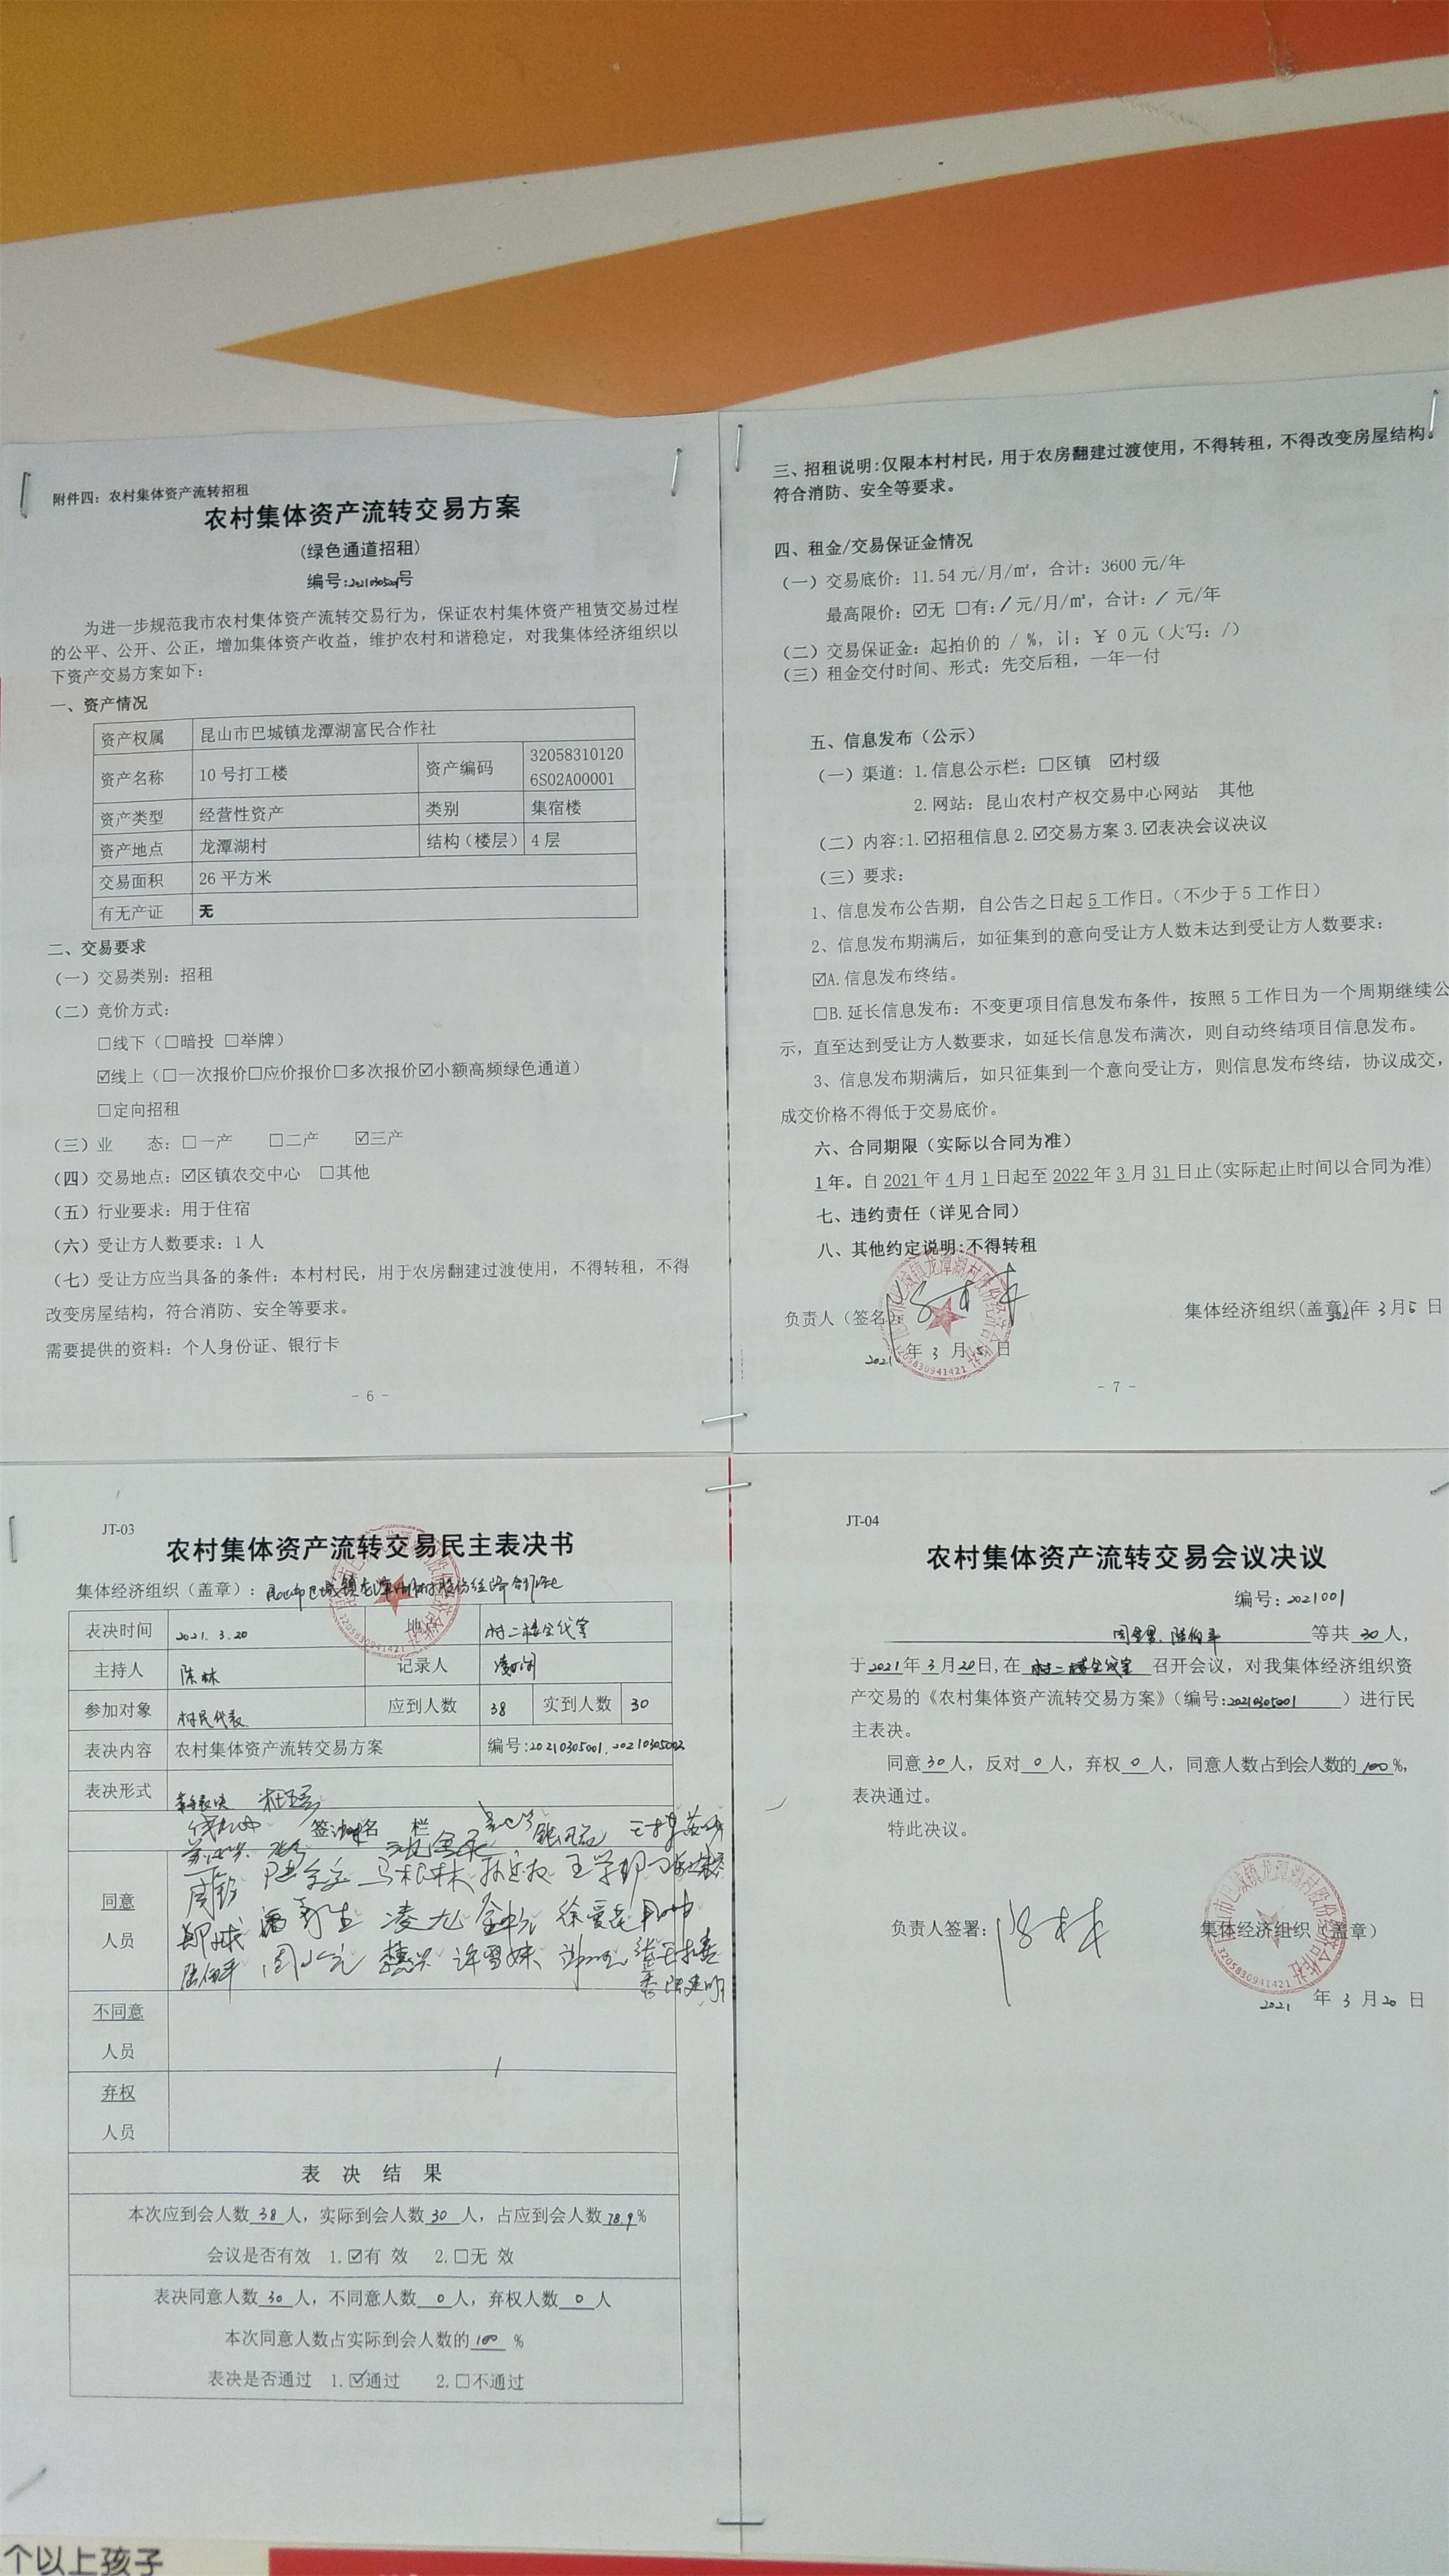 附件四：农村集体资产流转招租
农村集体资产流转交易方案
(绿色通道招租)
编号:20210305001号
为进一步规范我市农村集体资产流转交易行为，保证农村集体资产租赁交易过程
的公平、公开、公正，增加集体资产收益，维护农村和谐稳定，对我集体经济组织以
下资产交易方案如下：
一、资产情况
资产权属 昆山市巴城镇龙潭湖富民合作社
资产名称 10 号打工楼 资产编码 32058310120
6S02A00001
资产类型 经营性资产 类别 集宿楼
资产地点 龙潭湖村 结构（楼层） 4 层
交易面积 26 平方米
有无产证 无
二、交易要求
（一）交易类别：招租
（二）竞价方式：
☐线下（☐暗投 ☐举牌）
☑线上（☐一次报价☐应价报价☐多次报价☑小额高频绿色通道）
☐定向招租
（三）业 态：☐一产 ☐二产 ☑三产
（四）交易地点：☑区镇农交中心 ☐其他
（五）行业要求：用于住宿
（六）受让方人数要求：1 人
（七）受让方应当具备的条件：本村村民，用于农房翻建过渡使用，不得转租，不得
改变房屋结构，符合消防、安全等要求。
需要提供的资料：个人身份证、银行卡
- 6 -
三、招租说明:仅限本村村民，用于农房翻建过渡使用，不得转租，不得改变房屋结构。
符合消防、安全等要求。
四、租金/交易保证金情况
（一）交易底价：11.54 元/月/㎡，合计：3600 元/年
最高限价：☑无 ☐有：/ 元/月/㎡，合计：/ 元/年
（二）交易保证金：起拍价的 / %，计：￥ 0 元（大写：/）
（三）租金交付时间、形式：先交后租，一年一付
五、信息发布（公示）
（一）渠道：1.信息公示栏：☐区镇 ☑村级
2.网站：昆山农村产权交易中心网站 其他
（二）内容:1.☑招租信息 2.☑交易方案 3.☑表决会议决议
（三）要求：
1、信息发布公告期，自公告之日起 5 工作日。（不少于 5 工作日）
2、信息发布期满后，如征集到的意向受让方人数未达到受让方人数要求：
☑A.信息发布终结。
☐B.延长信息发布：不变更项目信息发布条件，按照 5 工作日为一个周期继续公
示，直至达到受让方人数要求，如延长信息发布满次，则自动终结项目信息发布。
3、信息发布期满后，如只征集到一个意向受让方，则信息发布终结，协议成交，
成交价格不得低于交易底价。
六、合同期限（实际以合同为准）
1年。自 2021 年 4 月 1 日起至 2022 年 3 月 31 日止(实际起止时间以合同为准)
七、违约责任（详见合同）
八、其他约定说明:不得转租
负责人（签名）： 集体经济组织(盖章)2021年 3 月5 日
2021 年 3 月 5 日
3205830941421
- 7 -
JT-03
农村集体资产流转交易民主表决书
集体经济组织（盖章）：昆山市巴城镇龙潭湖村股份经济合作社
3205830941421
表决时间 2021.3.20 地点 村二楼会议室
主持人 陈林 记录人
参加对象 村民代表 应到人数 38 实到人数 30
表决内容 农村集体资产流转交易方案 编号:20210305001.20210305002
表决形式 举手表决
签 名 栏
同意
人员
马根林 王学明
凌九 徐爱花
陆伯平 许雪妹
不同意
人员
弃权
人员
表 决 结 果
本次应到会人数 38 人，实际到会人数 30 人，占应到会人数 78.9 %
会议是否有效 1.☑有 效 2.☐无 效
表决同意人数 30 人，不同意人数 0 人，弃权人数 0 人
本次同意人数占实际到会人数的 100 %
表决是否通过 1.☑通过 2.☐不通过
JT-04
农村集体资产流转交易会议决议
编号：2021001
陆伯平 等共 30 人，
于2021年 3 月20日,在 村二楼会议室 召开会议，对我集体经济组织资
产交易的《农村集体资产流转交易方案》（编号:20210305001 ）进行民
主表决。
同意 30 人，反对 0 人，弃权 0 人，同意人数占到会人数的 100 %，
表决通过。
特此决议。
负责人签署： 集体经济组织（盖章）
昆山市巴城镇龙潭湖村股份经济合作社
3205830941421
2021 年 3 月 20 日
个以上孩子